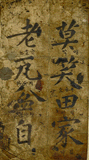 莫笑田家
老瓦盆自